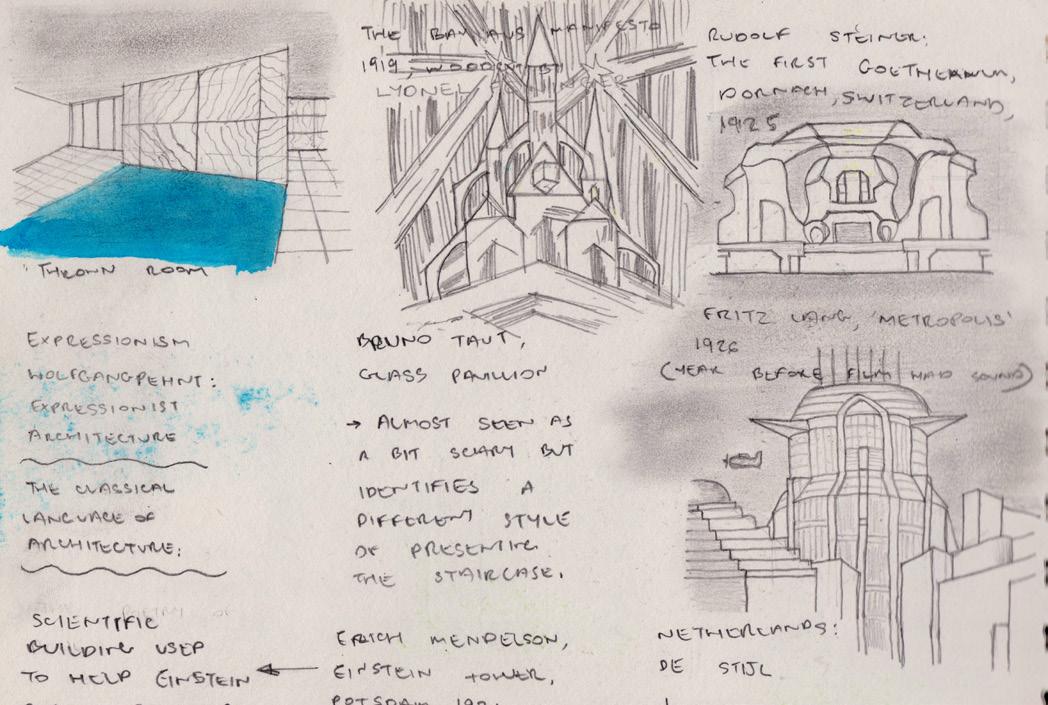 'THRONN ROOM
EXPRESSIONISM
WOLFGANGPEHNT:
EXPRESSIONIST
ARCHITECTURE
THE CLASSICAL
LANGUAGE OF
ARCHITECTURE:
SCIENTIFIC
BUILDING USED
TO HELP EINSTEIN
THE BAUHAUS MANIFESTO
1919, WOODCUT BY
LYONEL
BRUNO TAUT,
GLASS PAVILLION
→ ALMOST SEEN AS
A BIT SCARY BUT
IDENTIFIES A
DIFFERENT STYLE
OF PRESENTING
THE STAIRCASE.
ERICH MENDELSON,
EINSTEIN TOWER,
POTSDAM
RUDOLF STEINER:
THE FIRST GOETHEANUM,
DORNACH, SWITZERLAND,
1925
FRITZ LANG, 'METROPOLIS'
1926
(YEAR BEFORE FILM HAD SOUND)
NETHERLANDS:
DE STIJL